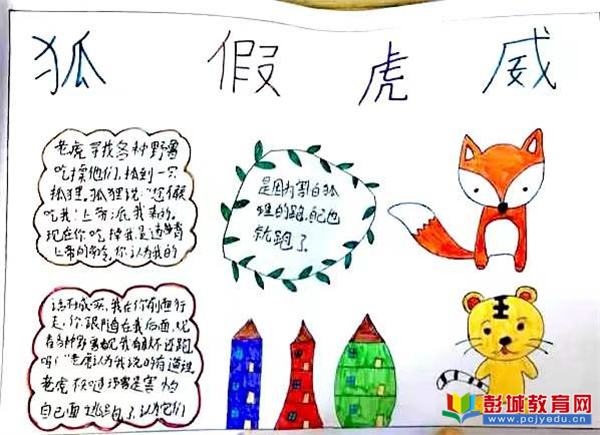 狐假虎威
老虎寻找各种野兽
吃掉他们,抓到一只
狐狸。狐狸说:"您假
吃我!上帝派我来的。
现在你吃掉我,是违背
上帝的命令。你认为我的
话不诚实,我在你前面行
走,你跟随在我后面,观
看各种野兽看见我有敢不逃跑
吗?"老虎认为我说的有道理
老虎不知道野兽是害怕
自己而逃跑了,认为它们
是因为害怕狐
狸的跑,自己也
就跑了。
彭城教育网
www.pcjyedu.cn
王